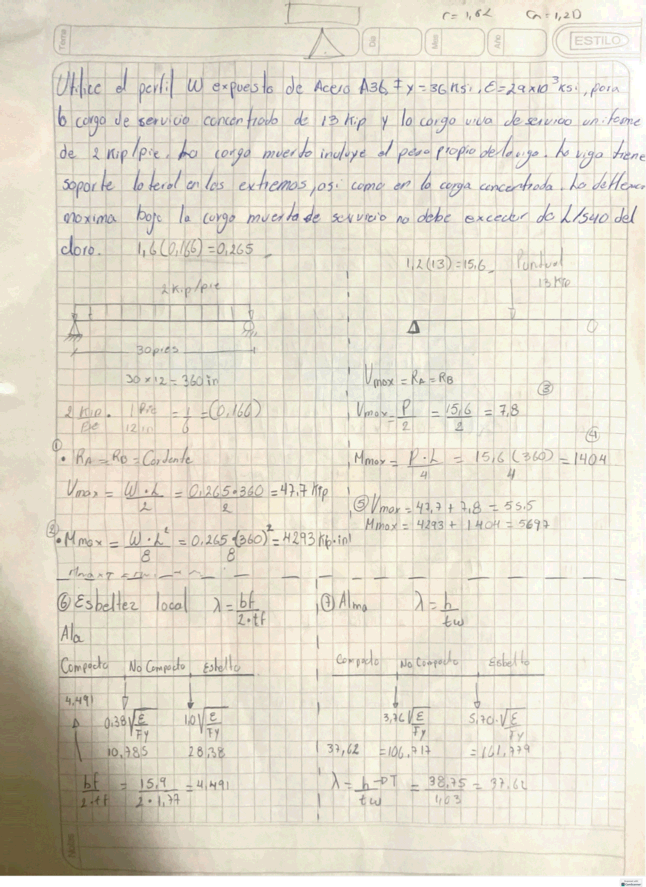 r = 1,62 Cm = 1,20
Tema Día Mes Año ESTILO
Utilice el perfil W expuesto de Acero A36, Fy = 36 Ksi, E = 29x10³ ksi, para
la carga de servicio concentrada de 13 Kip y la carga viva de servicio uniforme
de 2 Kip/pie. La carga muerta incluye el peso propio de la viga. La viga tiene
soporte lateral en los extremos, asi como en la carga concentrada. La deflexion
maxima bajo la carga muerta de servicio no debe exceder da L/540 del
claro. 1,6(0,166) = 0,265
1,2(13) = 15,6 Puntual
13 Kip
2 Kip/pie
30 pies
30 x 12 = 360 in
2 Kip/pie . 1 Pie/12 in = 1/6 = (0,166)
① • RA = RB = Cortante
Vmax = W·L/2 = 0,265·360/2 = 47,7 Kip
② • Mmax = W·L²/8 = 0,265·(360)²/8 = 4293 Kip·in
Vmax = RA = RB
③ Vmax = P/2 = 15,6/2 = 7,8
④ Mmax = P·L/4 = 15,6(360)/4 = 1404
⑤ Vmax = 47,7 + 7,8 = 55,5
Mmax = 4293 + 1404 = 5697
⑥ Esbeltez local λ = bf/2·tf
Ala
Compacto No Compacto Esbelto
4,491
0,38√E/Fy 1,0√E/Fy
10,785 28,38
bf/2·tf = 15,9/2·1,77 = 4,491
⑦ Alma λ = h/tw
Compacto No Compacto Esbelto
3,76√E/Fy 5,70·√E/Fy
37,62 = 106,717 = 161,779
λ = h→DT/tw = 38,75/1,03 = 37,62
Notas